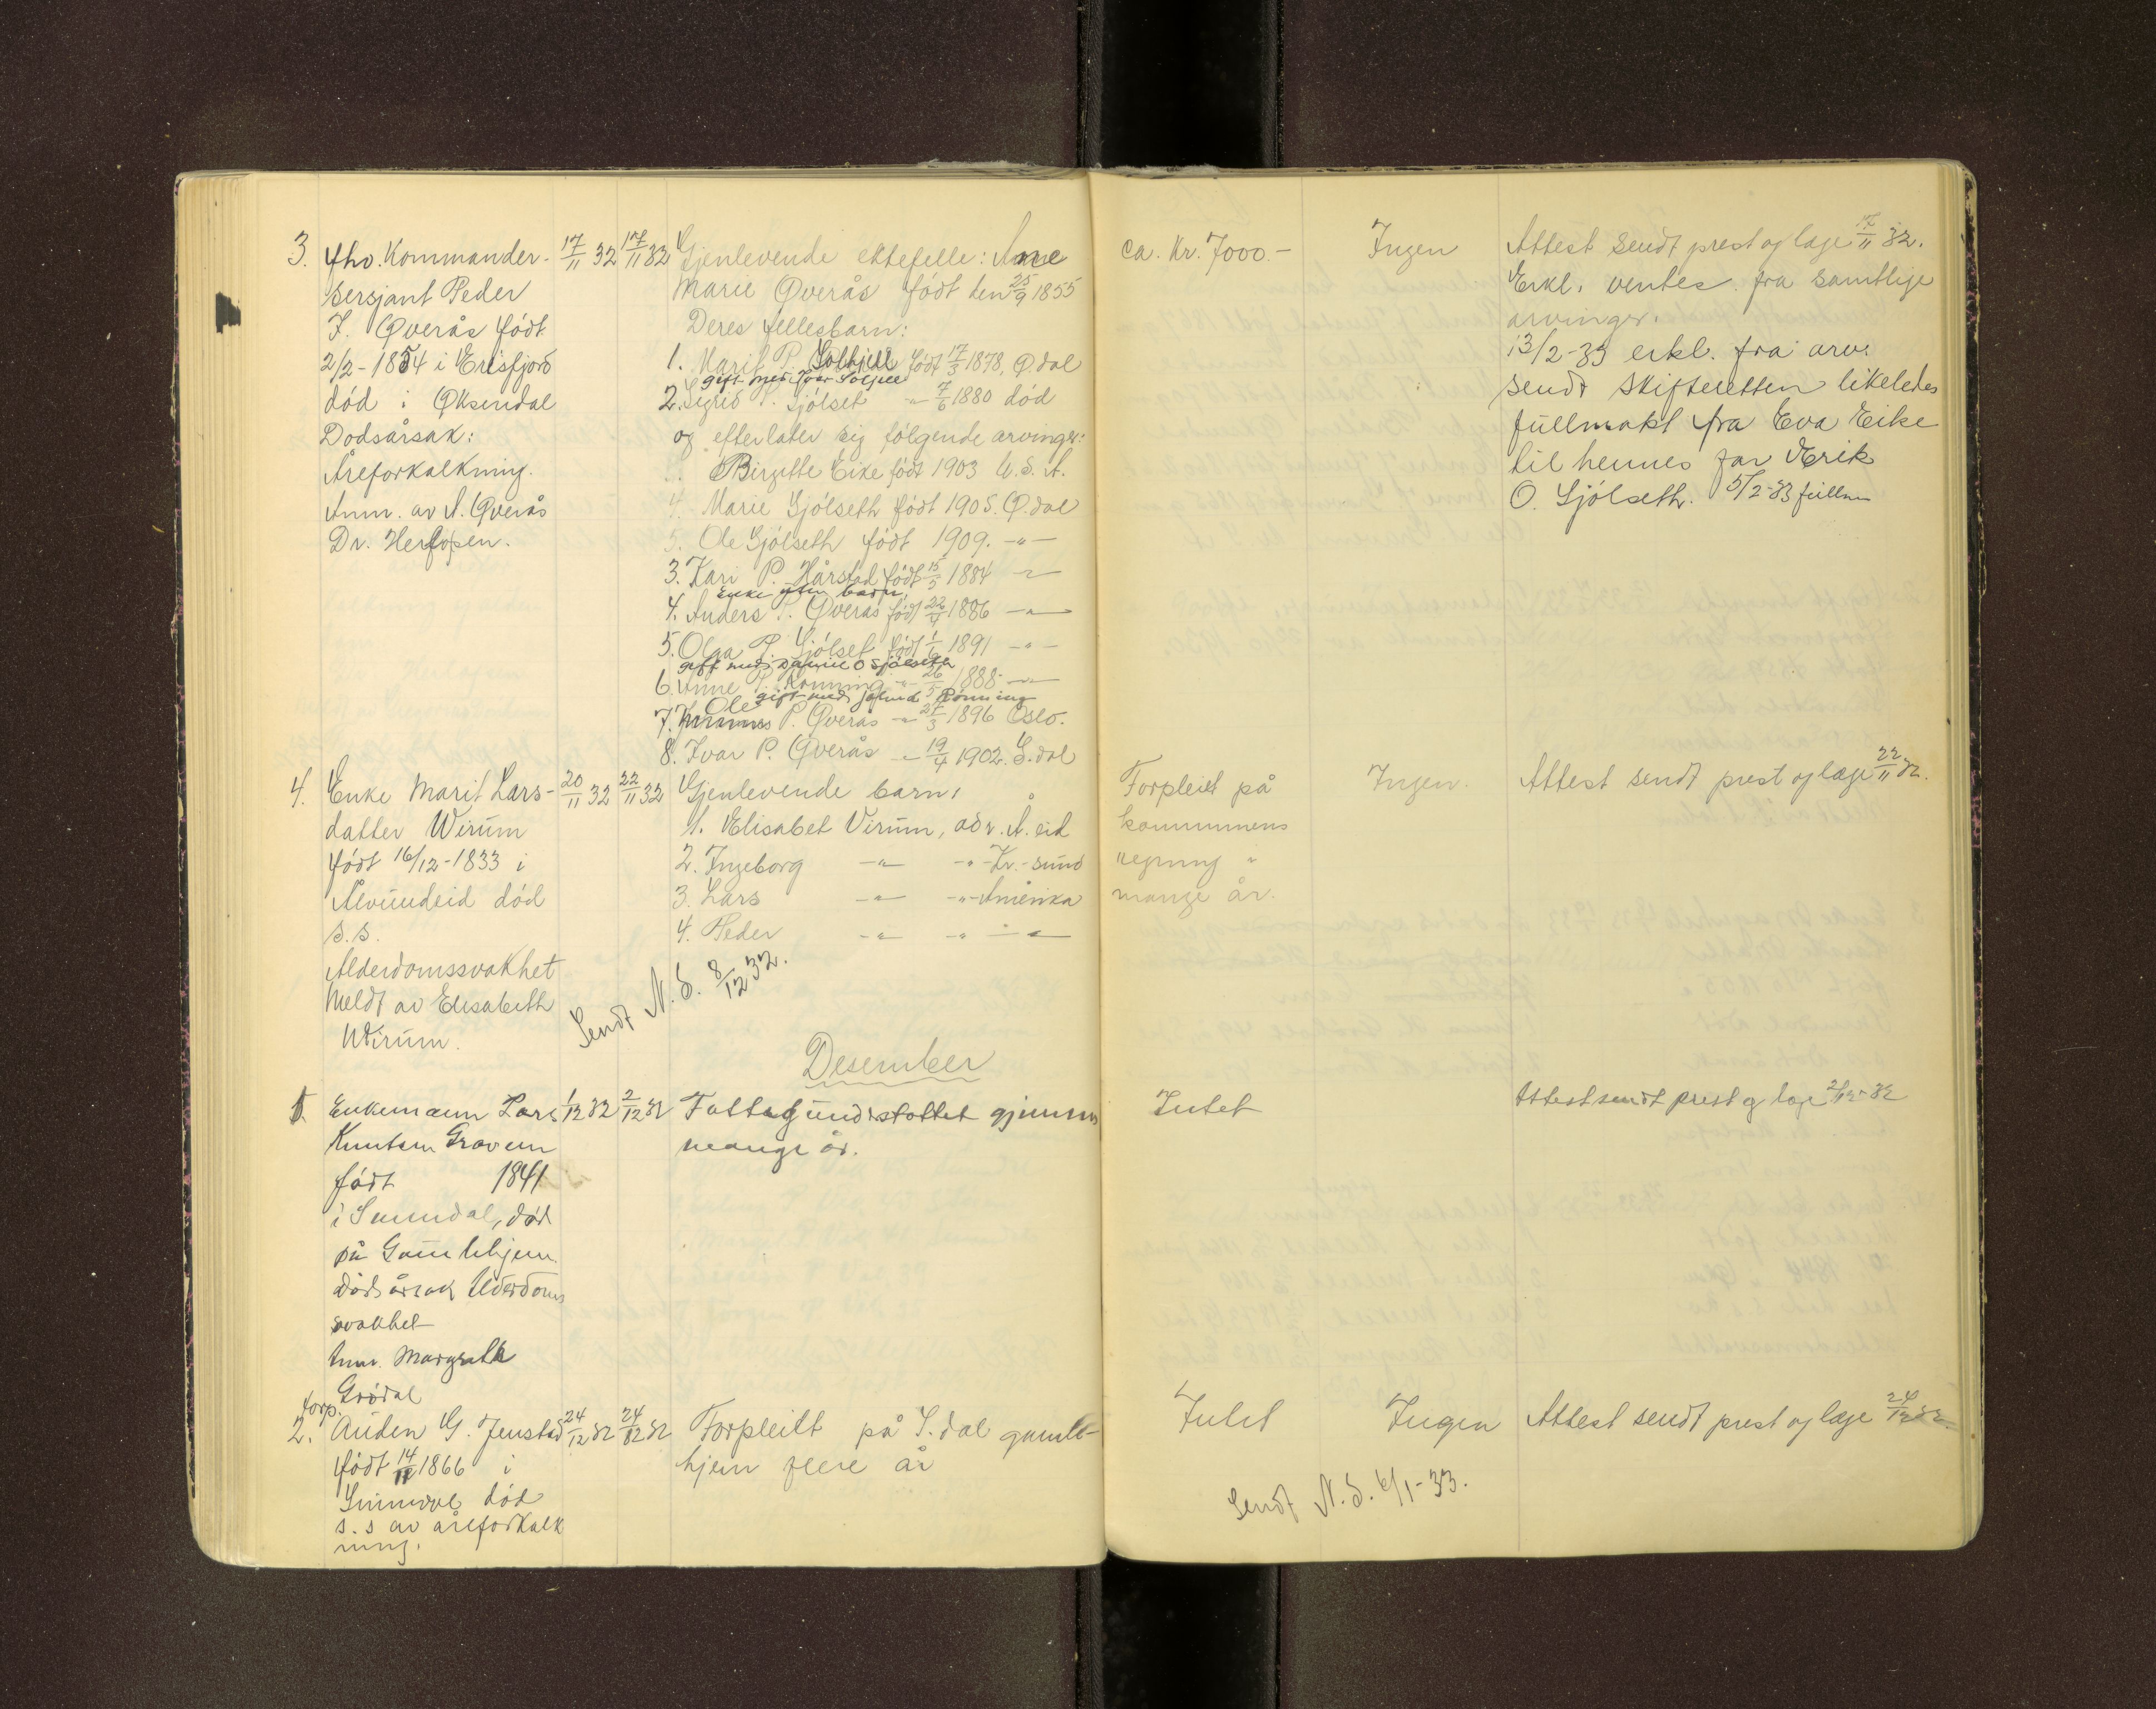 3. fhv. Kommander- 17/11 32 17/11 32 Gjenlevende ektefelle: Ane
sersjant Peder Marie Øverås født den 25/9 1855
I. Øverås født Deres fellesbarn:
2/2-1854 i Erisfjord 1. Marit P. Solhjell født 17/3 1878, Ø.dal
gift med Ivar Soljell
død i Øksendal 2. Sigrid P. Sjølset -"- 7/6 1880 død
Dødsårsak: og efterlater sig følgende arvinger:
Åreforkalkning. Birgitte Eike født 1903 U.S.A.
Anm. av A. Øverås 4. Marie Sjølseth født 1905. Ø.dal
Dr. Herlofsen. 5. Ole Sjølseth født 1909. -"-
3. Kari P. Hårstad født 15/5 1884 -"-
Enke uten barn,
4. Anders P. Øverås født 22/4 1886 -"-
5. Olga P. Sjølset født 1/9 1891 -"-
gift med O Sjølseth
6. Anne P. Rønning -"- 26/5 1888 -"-
gift med Rønning
Ole
7. P. Øverås -"- 27/3 1896 Oslo.
8. Ivar P. Øverås -"- 19/4 1902. S.dal
ca. Kr. 7000.- Ingen Attest sendt prest og læge 17/11 32.
Erkl. ventes fra samtlige
arvinger.
13/2-33 erkl. fra arv.
sendt skifteretten likeledes
fullmakt fra Eva Eike
til hennes far Erik
O. Sjølseth. 5/2-33 fullm
4. Enke Marit Lars- 20/11 32 22/11 32 Gjenlevende barn:
datter Wirum 1. Elisabet Virum, adr. Å.eid
født 16/12-1833 i 2. Ingeborg -"- -"- Kr.-sund
Ålvundeid død 3. Lars -"- -"- Amerika
s.s. 4. Peder -"- -"- -"-
Alderdomssvakhet
Meldt av Elisabeth
Wirum.
Sendt N.S. 8/12 32.
Forpleiet på Ingen. Attest sendt prest og læge 22/11 32.
kommunens
regning i
mange år.
Desember
1 Enkemann Lars 1/12 32 2/12 32 Fattigunderstøttet gjennem
Knutsen Gravem mange år.
født 1841
i Sunndal, død
på Gamlehjem
Dødsårsak Alderdoms
svakhet
Anm. Margrethe
Grødal
Intet Attest sendt prest og læge 2/12-32
forp.
2. Auden G. Jenstad 24/12 32 24/12 32 Forpleiet på S.dal gamle-
født 14/11 1866 i hjem flere år
Sunndal død
s.s av åreforkalk
ning.
Intet Ingen Attest sendt prest og læge 24/12 32
Sendt N.S. 6/1-33.